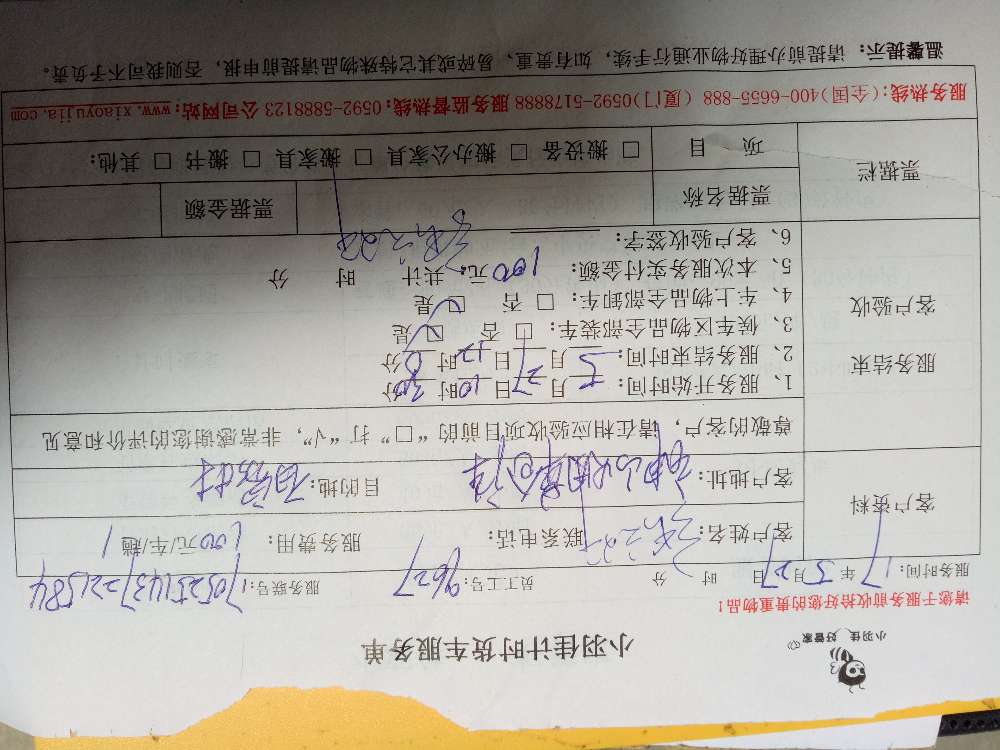 小羽佳 好管家
小羽佳计时货车服务单
请您于服务前收拾好您的贵重物品！
服务时间：17年5月27日 时 分 员工工号：9627 服务联号：1705251437221584
客户资料
客户姓名： 联系电话： 服务费用：100元/车/趟
客户地址： 目的地：
尊敬的客户，请在相应验收项目前的“□”打“√”，非常感谢您的评价和意见
服务结束
客户验收
1、服务开始时间：5月27日10时30分
2、服务结束时间：5月27日12时0分
3、候车区物品全部装车：□ 否 ☑ 是
4、车上物品全部卸车：□ 否 ☑ 是
5、本次服务实付金额：100元，共计 时 分
6、客户验收签字：
票据栏
票据名称 票据金额
项 目 □ 搬设备 □ 搬办公家具 □ 搬家具 □ 搬书 □ 其他：
服务热线：(全国)400-6655-888 (厦门)0592-5178888 服务监督热线：0592-5888123 公司网站：www.xiaoyujia.com
温馨提示：请提前办理好物业通行手续，如有贵重、易碎或其它特殊物品请提前申报，否则我司不予负责。